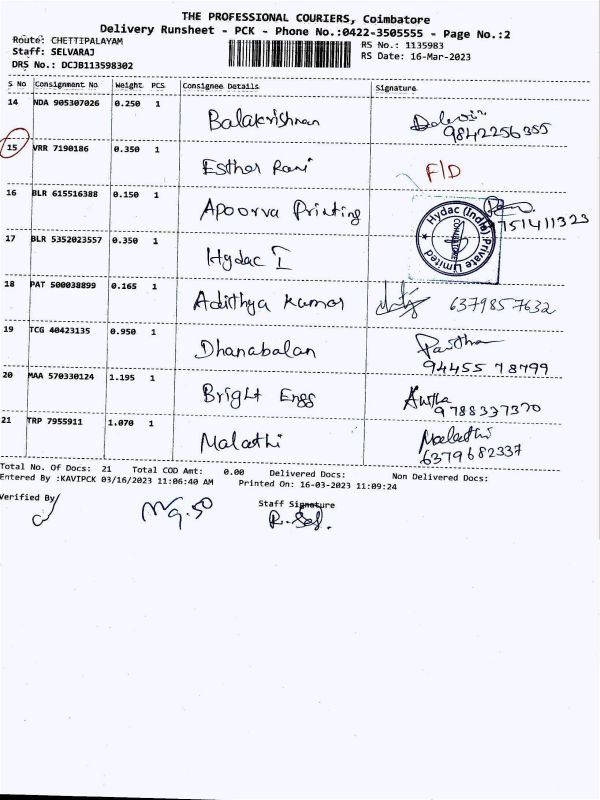 THE PROFESSIONAL COURIERS, Coimbatore
Delivery Runsheet - PCK - Phone No.:0422-3505555 - Page No.:2
Route: CHETTIPALAYAM
RS No.: 1135983
Staff: SELVARAJ
RS Date: 16-Mar-2023
DRS No.: DCJB113598302
S No Consignment No Weight PCS Consignee Details Signature
14 NDA 905307026 0.250 1 Balakrishnan 9842256355
15 VRR 7190186 0.350 1 Esther Rani F/D
16 BLR 615516388 0.150 1 Apoorva Printing 9751411323
17 BLR 5352023557 0.350 1 Hydac I Hydac (India) Private Limited ★ COIMBATORE
18 PAT 500038899 0.165 1 Adithya Kumar 6379857632
19 TCG 40423135 0.950 1 Dhanabalan Partha
94455 78799
20 MAA 570330124 1.195 1 Bright Engg 9788337370
21 TRP 7955911 1.070 1 Malathi Malathi
6379682337
Total No. Of Docs: 21 Total COD Amt: 0.00 Delivered Docs: Non Delivered Docs:
Entered By :KAVIPCK 03/16/2023 11:06:40 AM Printed On: 16-03-2023 11:09:24
Verified By
Staff Signature
R. Sel.